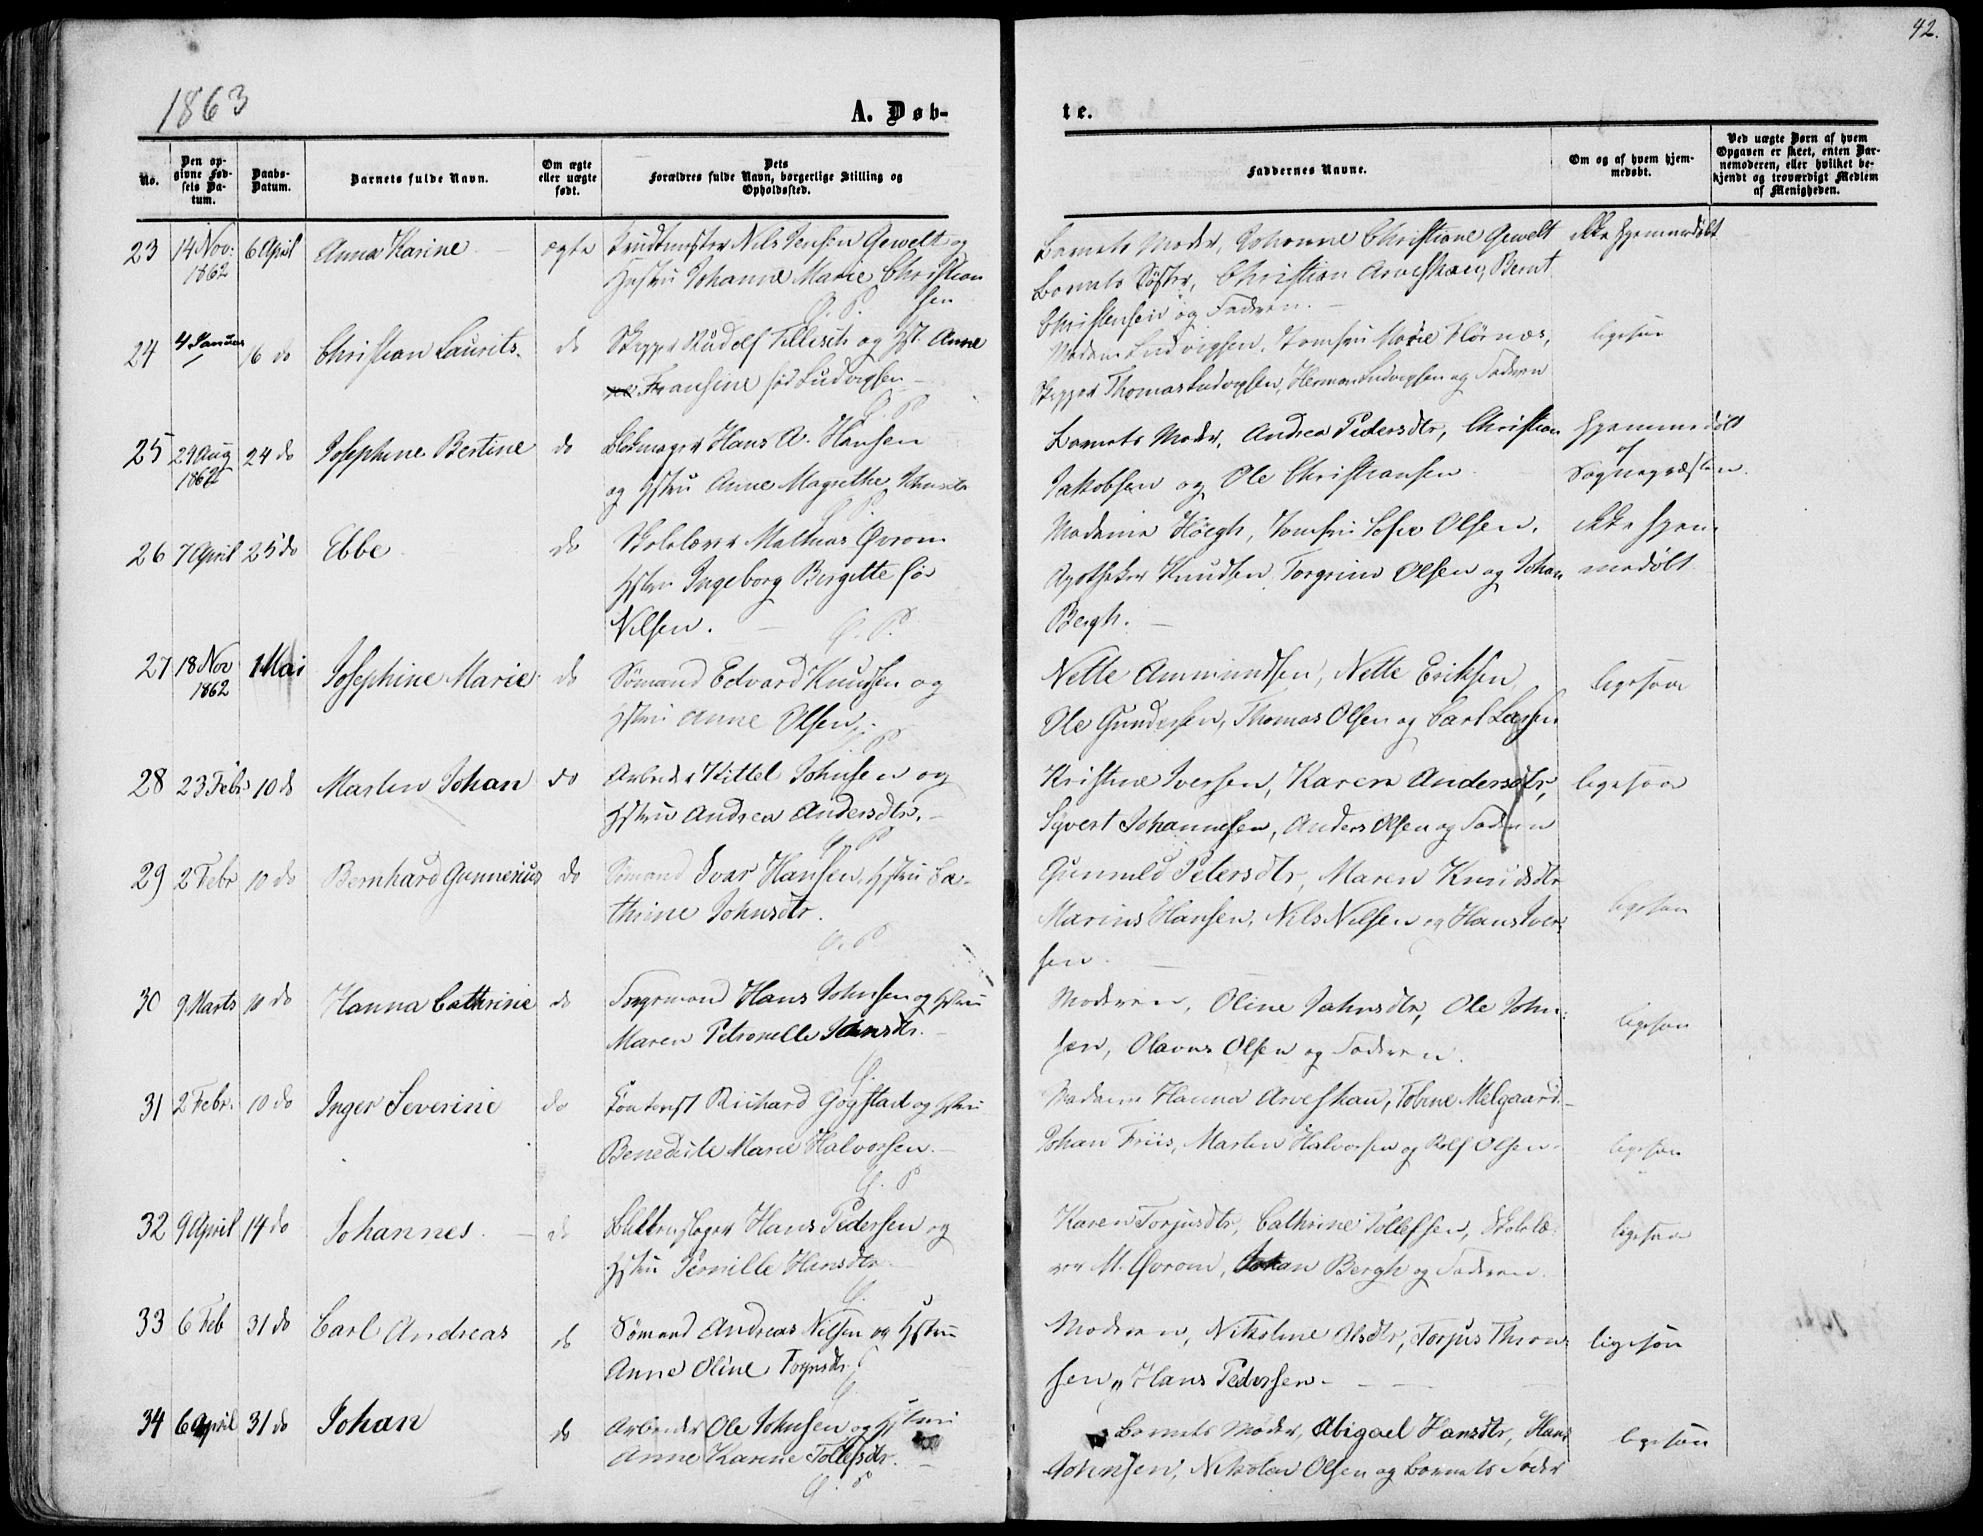 42.
1863
A. Døb-
te.
No.
Den op-
givne Fød-
sels Da-
tum.
Daabs-
Datum.
Barnets fulde Navn.
Om ægte
eller uægte
født.
Dets
Forældres fulde Navn, borgerlige Stilling og
Opholdssted.
Faddernes Navne.
Om og af hvem hjem-
medøbt.
Ved uægte Børn af hvem
Opgaven er skeet, enten Bar-
nemoderen, eller hvilket be-
kjendt og troværdigt Medlem
af Menigheden.
23 14 Nov: 1862 6 April Anna Karine ægte
Nils Jensen Gewelt og
Hustru Johanne Marie Christian
sen
Barnets Moder, Johanne Christiane Gewelt
Barnets Søster, Christian Arveskau, Bernt
Christensen og Faderen.
ikke hjemmedøbt
24 4 Januar 16 do Christian Laurits. do
Skipper Rudolf Tellisch og Hst. Anne
Fransine fød Ludvigsen
Madam Ludvigsen, Jomfru Marie Flørnæs,
Skipper Thomas Ludvigsen, Herman Ludvigsen og Faderen
ligesaa
25 29 Aug 1862 24 do Josephine Bertine do
Blokmager Hans A. Hansen
og Hstru Anne Magrethe
Barnets Moder, Andrea Pedersdtr, Christian
Jakobsen og Ole Christiansen
hjemmedøbt
af
Sognepræsten.
26 7 April 25 do Ebbe do
Skolelærer Mathias Qvrom
Hstru Ingeborg Birgitte før
Nilsen. G. P.
Madame Høegh, Jomfru Sofie Olsen,
Apotheker Knudsen, Torgrim Olsen og Johan
Bergh.
ikke hjem-
medøbt
27 18 Nov 1862 1 Mai Josephine Marie do
Sømand Edvard Knudsen og
Hstru Anne Olsen.
Nette Ammundsen, Nette Eriksen,
Ole Gundersen, Thomas Olsen og Carl Larsen
ligesaa
28 23 Febr 10 do Marten Johan do
Arbeider Kittel Johnsen og
Hstru Andrea Andersdtr.
Kristine Iversen, Karen Andersdtr,
Syvert Johannesen, Anders Olsen og Faderen
ligesaa
29 2 Febr 10 do Bernhard Gunnerius do
Sømand Ivar Hansen, Hstru Ca-
thrine Johnsdtr.
Gunnild Petersdtr, Maren Knudsdtr
Marius Hansen, Nils Nilsen og Hans Iver-
sen.
ligesaa
30 9 Marts 10 do Hanna Cathrine do
Hans Johnsen og Hstru
Maren Petronelle Johnsdtr.
Moderen, Oline Jahnsdtr, Ole John-
sen, Olavus Olsen og Faderen.
ligesaa
31 2 Febr. 10 do Inger Severine do
Richard Gogstad og Hstru
Benedicte Marie Halvorsen.
Madame Hanna Arveskau, Tobine Melgaard
Johan Friis, Marten Halvorsen og Rolf Olsen.
ligesaa
32 9 April 14 do Johannes. do
Hans Pedersen og
Hstru Pernille Hansdtr
Karen Torjusdtr, Cathrine Tollefsen, Skolelæ-
rer M. Qvrom, Johan Bergh og Faderen.
ligesaa
33 6 Feb 31 do Carl Andreas do
Sømand Andreas Nilsen og Hstru
Anne Oline Torjusdtr
Moderen, Nikoline Olsdtr, Torjus Thron-
sen, Hans Pedersen
ligesaa
34 6 April 31 do Johan do
Arbeider Ole Johnsen og Hstru
Anne Karine Tollefsdtr.
G. P
Barnets Moder, Abigael Hansdtr, Hans
Johnsen, Nikolai Olsen og Barnets Fader
ligesaa